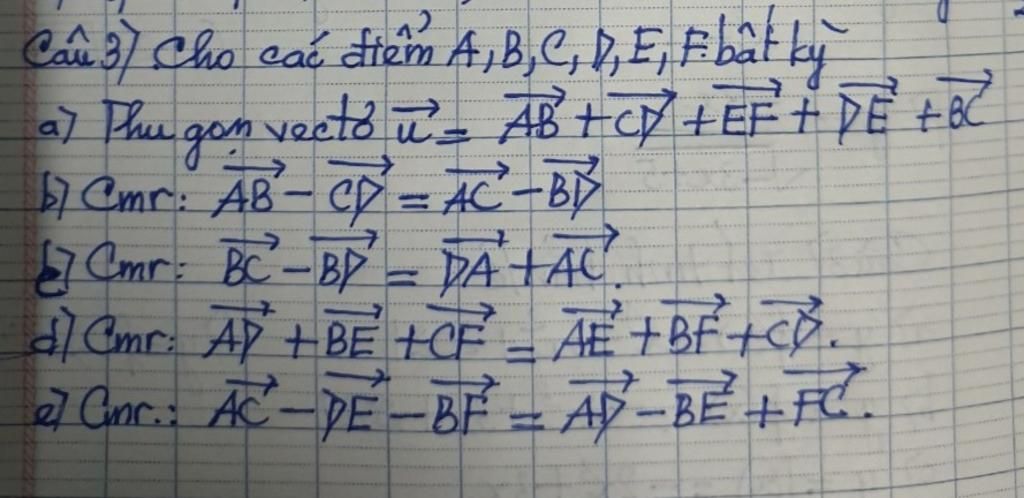 Câu 3) Cho các điểm A, B, C, D, E, F bất kỳ
a) Thu gọn vectơ \(\overrightarrow{u} = \overrightarrow{AB} + \overrightarrow{CD} + \overrightarrow{EF} + \overrightarrow{DE} + \overrightarrow{BC}\)
b) Cmr: \(\overrightarrow{AB} - \overrightarrow{CD} = \overrightarrow{AC} - \overrightarrow{BD}\)
c) Cmr: \(\overrightarrow{BC} - \overrightarrow{BD} = \overrightarrow{DA} + \overrightarrow{AC}\).
d) Cmr: \(\overrightarrow{AD} + \overrightarrow{BE} + \overrightarrow{CF} = \overrightarrow{AE} + \overrightarrow{BF} + \overrightarrow{CD}\).
e) Cmr.: \(\overrightarrow{AC} - \overrightarrow{DE} - \overrightarrow{BF} = \overrightarrow{AD} - \overrightarrow{BE} + \overrightarrow{FC}\).